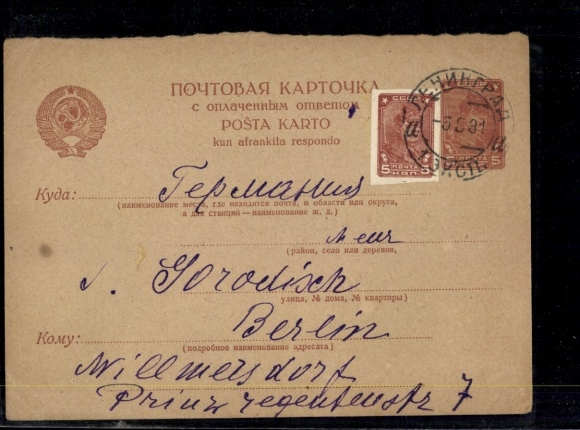 ПОЧТОВАЯ КАРТОЧКА
с оплаченным ответом
POŜTA KARTO
kun afrankita respondo
СССР
5 5
ПОЧТА
КОП.
5
ЛЕНИНГРАД
ЭКСП.
Куда: Германия
(наименование места, где находится почта, и области или округа,
а для станций—наименование ж. д.)
(район, село или деревня,
Gorodisch
улица, № дома, № квартиры)
Berlin
Кому:
(подробное наименование адресата)
Willmersdorf
Prinzregentenstr 7